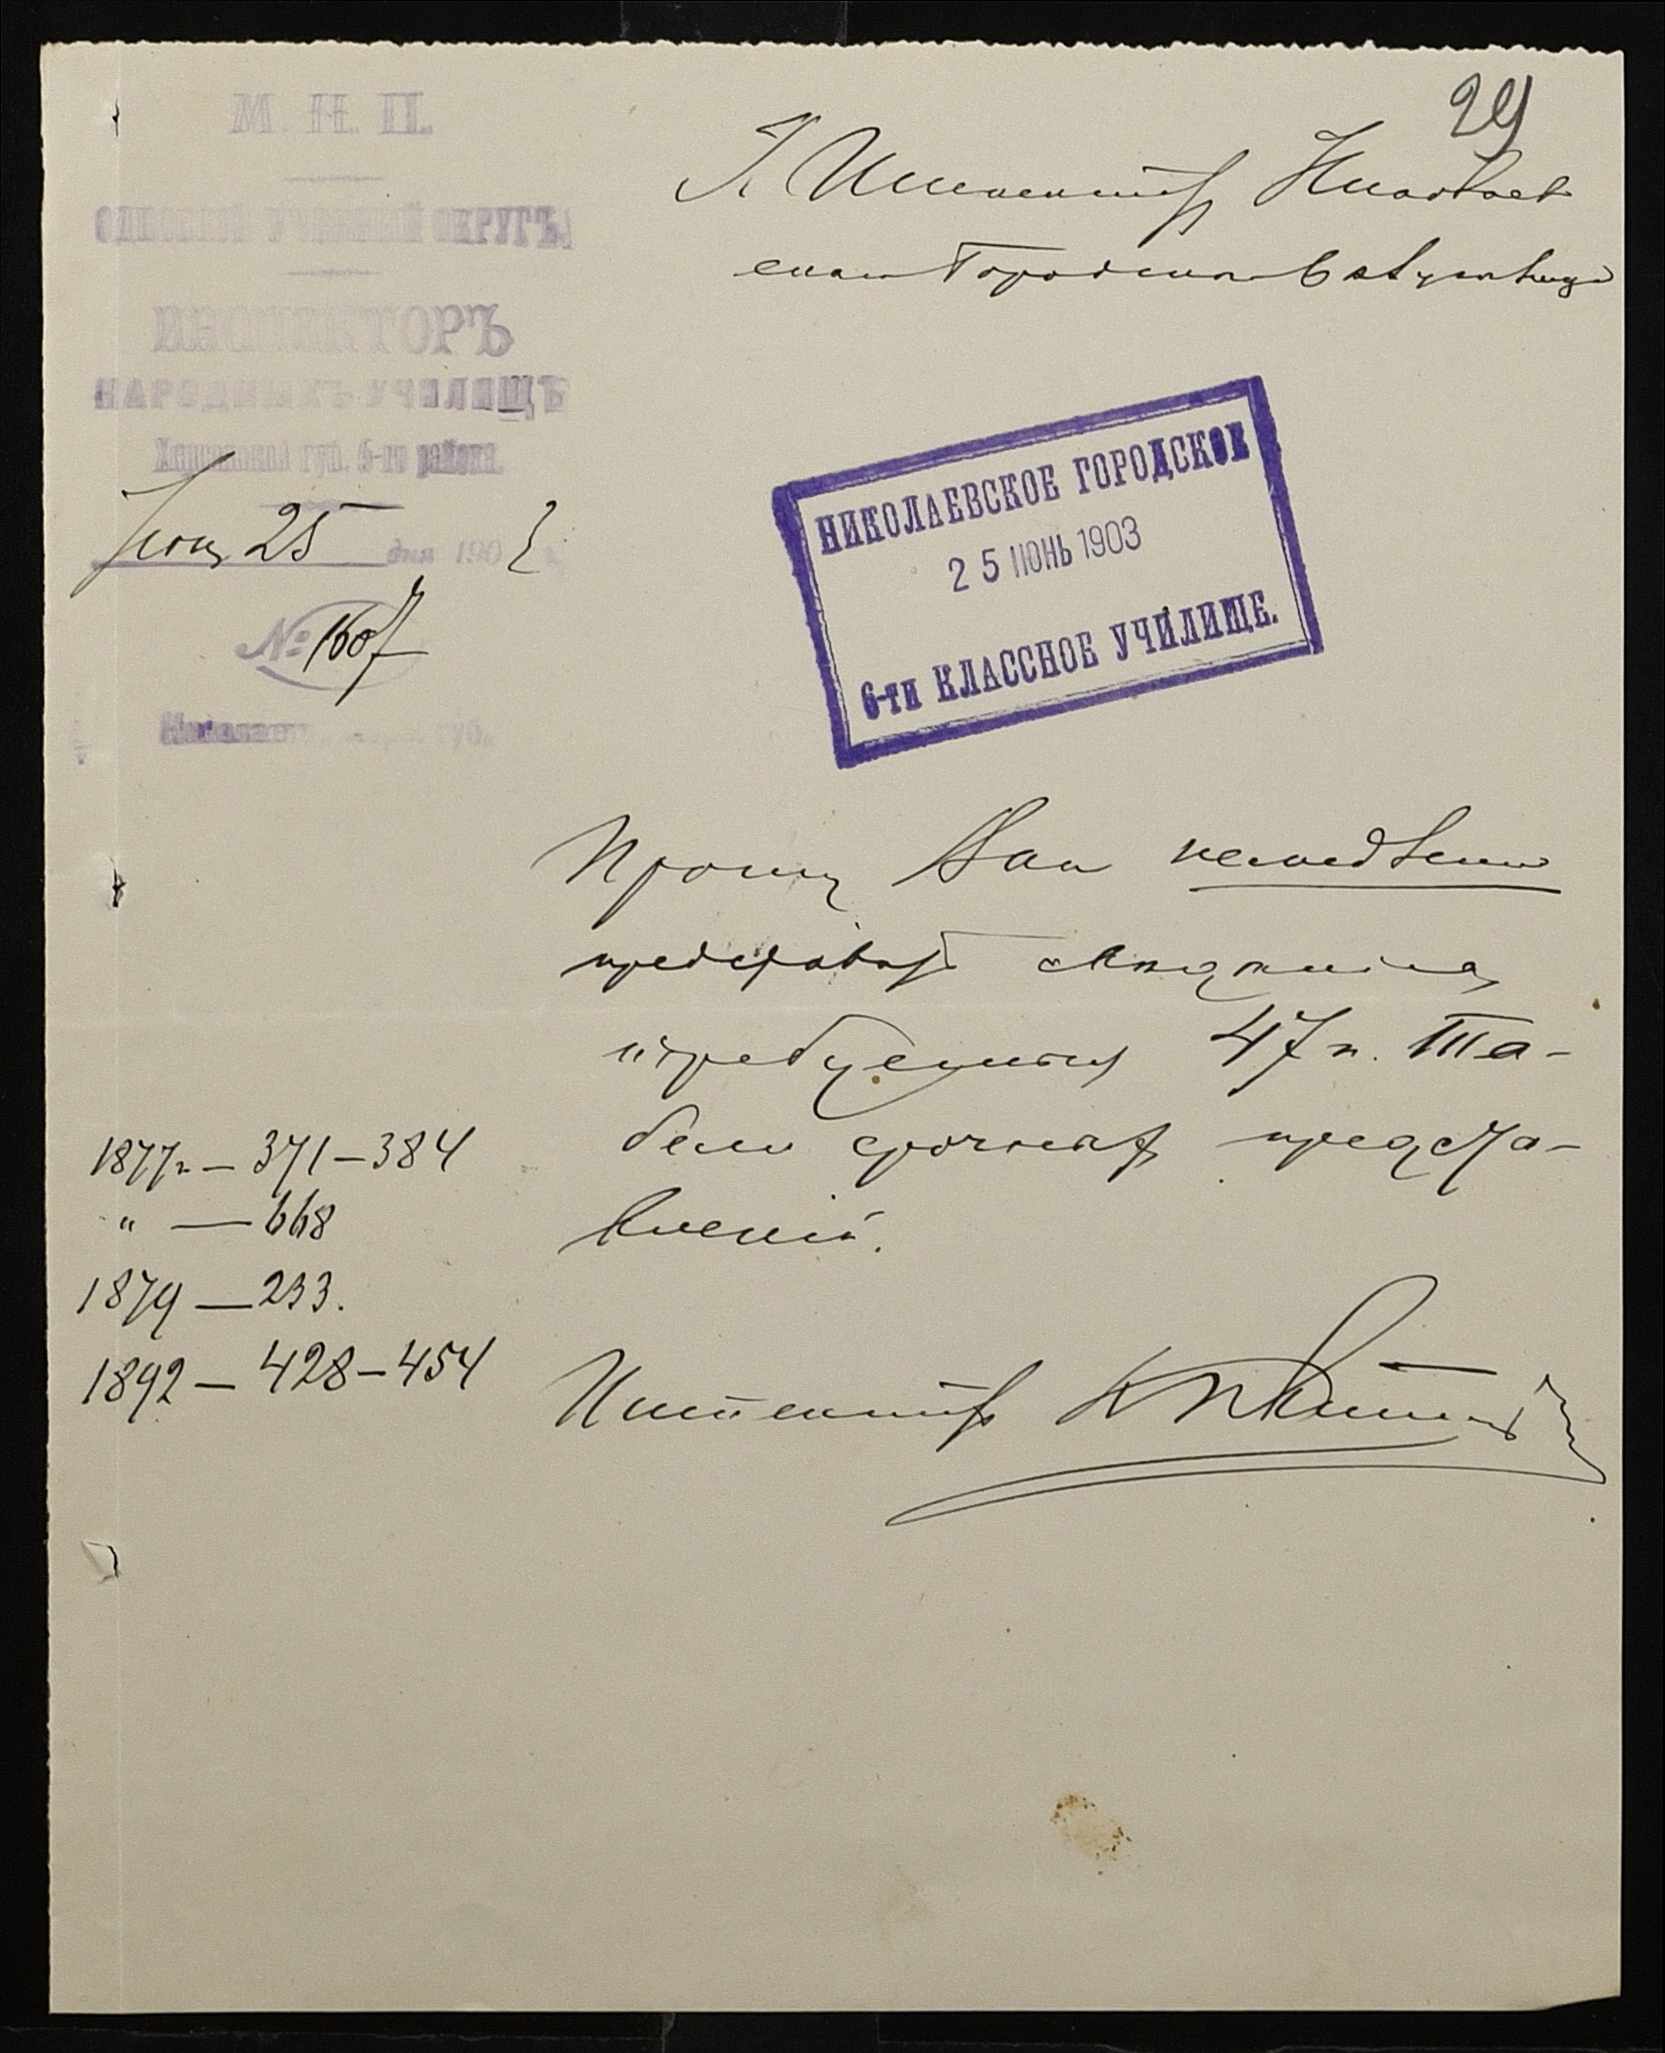 29
М. Н. П.
ОДЕССКІЙ УЧЕБНЫЙ ОКРУГЪ.
ИНСПЕКТОРЪ
НАРОДНЫХЪ УЧИЛИЩЪ
Херсонской губ. 6-го района.
Іюня 25 дня 1903
№ 1607
Николаевъ, губ.
Г. Инспектору Николаев
скаго Городского 6 кл училища
НИКОЛАЕВСКОЕ ГОРОДСКОЕ
25 ІЮНЬ 1903
6-ти КЛАССНОЕ УЧИЛИЩЕ.
Прошу Вас немедленно
представить свѣдѣнія,
требуемыя 47 п. Та-
бели срочныхъ предста-
вленій.
1877 г. — 371–384
" — 668
1879 — 233.
1892 — 428–454
Инспекторъ